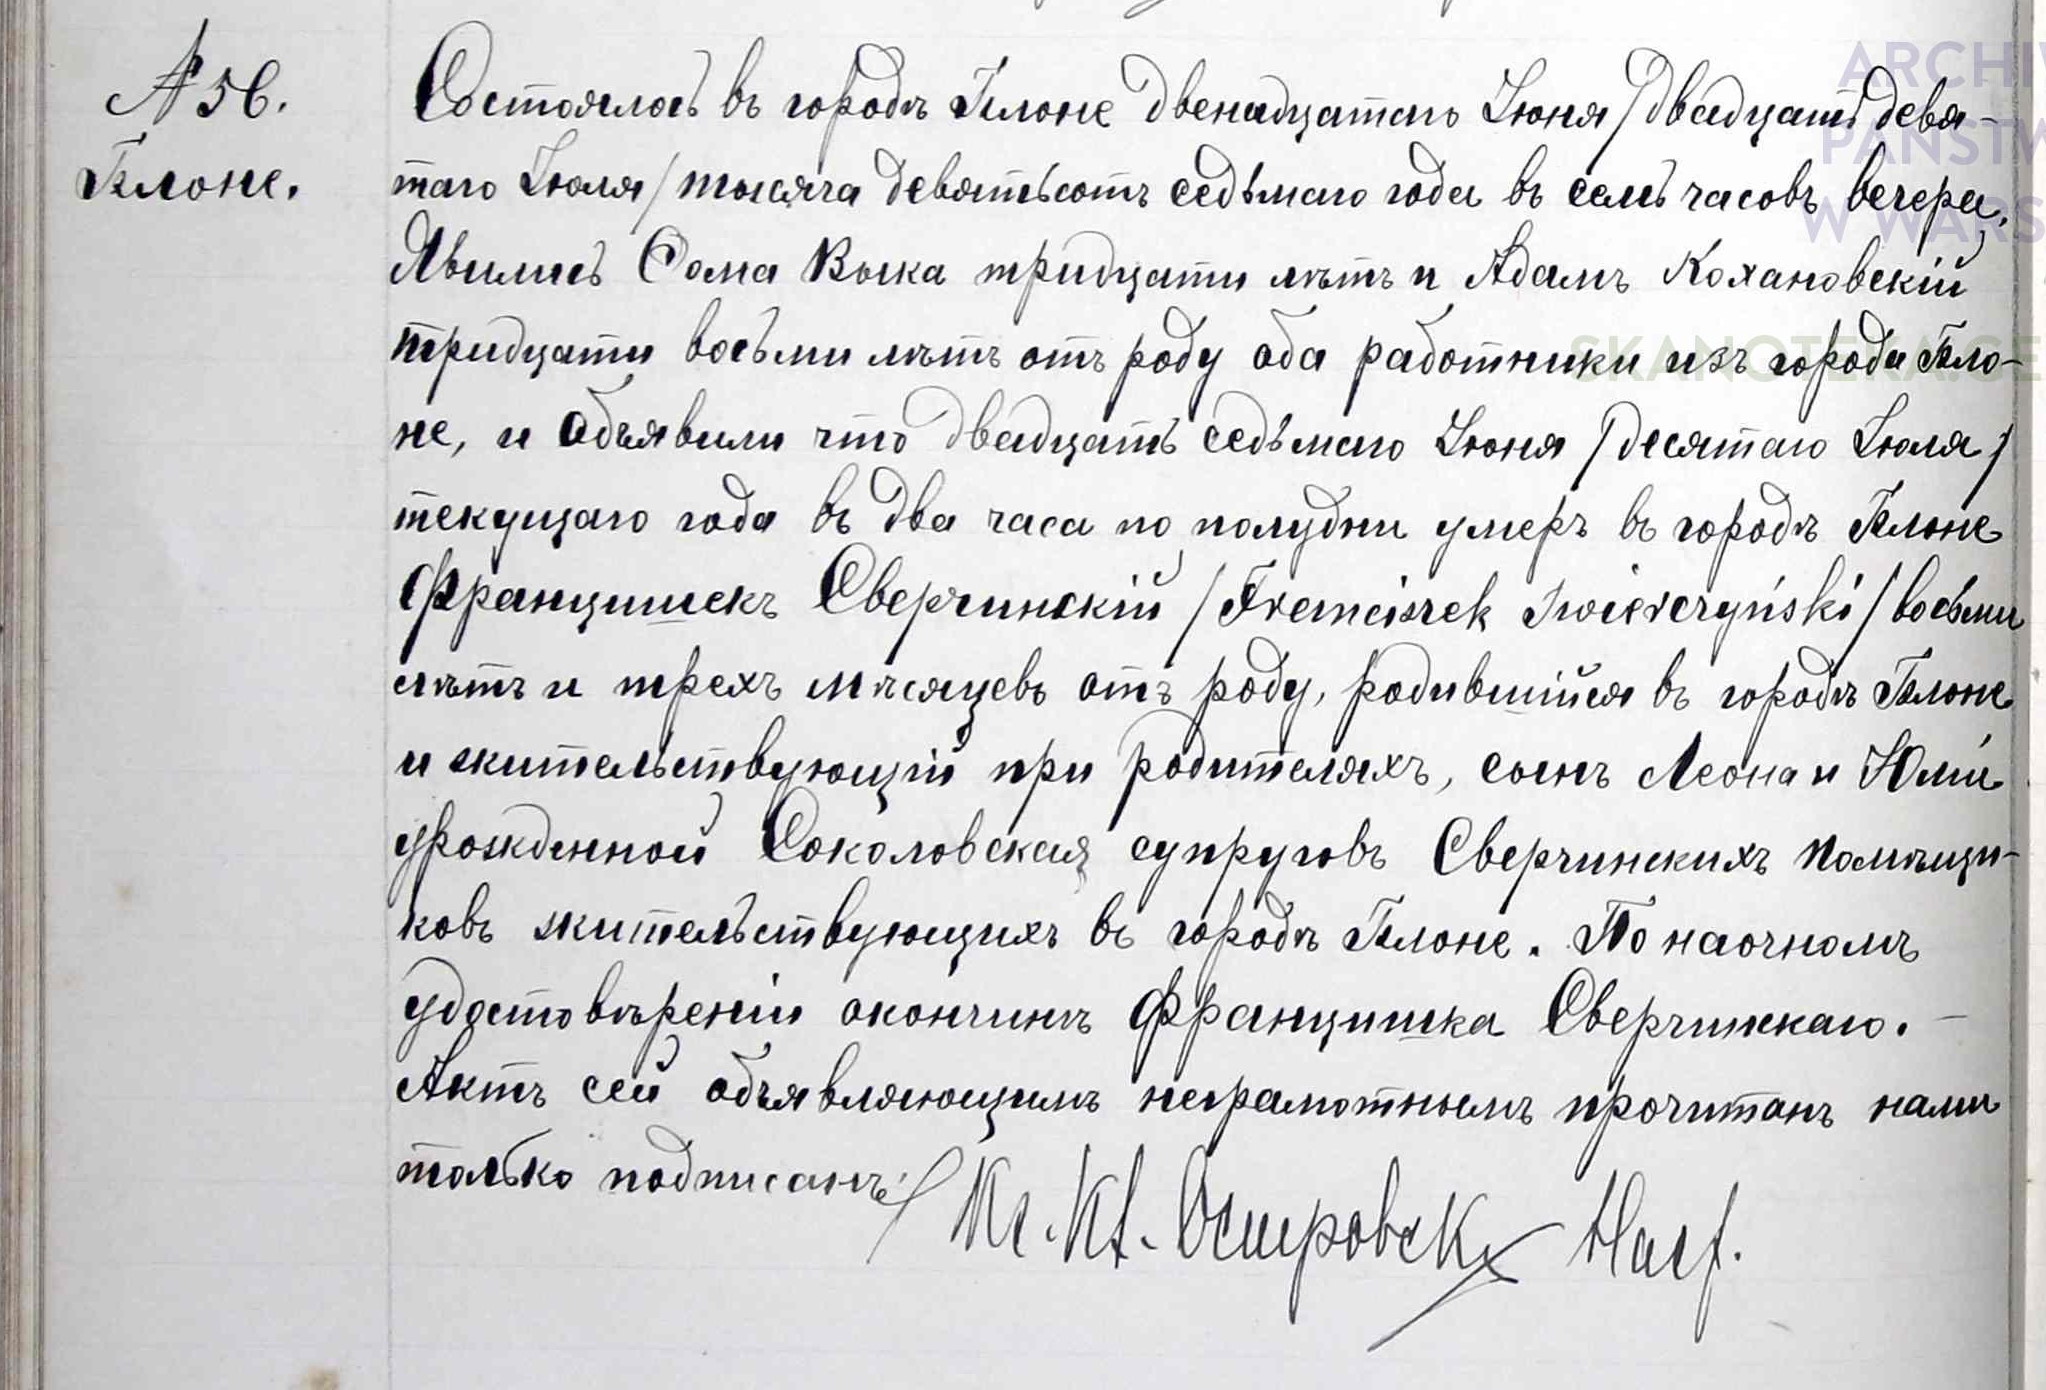 № 56.
Блоне.
Состоялось въ городѣ Блоне двенадцатаго Іюня /двадцать девя-
таго Іюля/ тысяча девятьсотъ седьмаго года въ семь часовъ вечера.
Явились Сома Выка тридцати лѣтъ и Адамъ Кохановскій
тридцати восьми лѣтъ отъ роду оба работники изъ города Бло-
не, и объявили что двадцать седьмаго Іюня /десятаго Іюля/
текущаго года въ два часа по полудни умеръ въ городѣ Блоне
Францишекъ Сверчинскій /Franciszek Swierczyński/ восьми
лѣтъ и трехъ мѣсяцевъ отъ роду, родившійся въ городѣ Блоне
и жительствующій при родителяхъ, сынъ Леона и Юліи
урожденной Соколовская супруговъ Сверчинскихъ помѣщи-
ковъ жительствующихъ въ городѣ Блоне. По наочномъ
удостовѣреніи окончинѣ Францишка Сверчинскаго. —
Актъ сей объявляющимъ неграмотнымъ прочитанъ нами
только подписанъ.
Островск
ARCHIW
PAŃSTW
W WARS
SKANOTEKA.GE